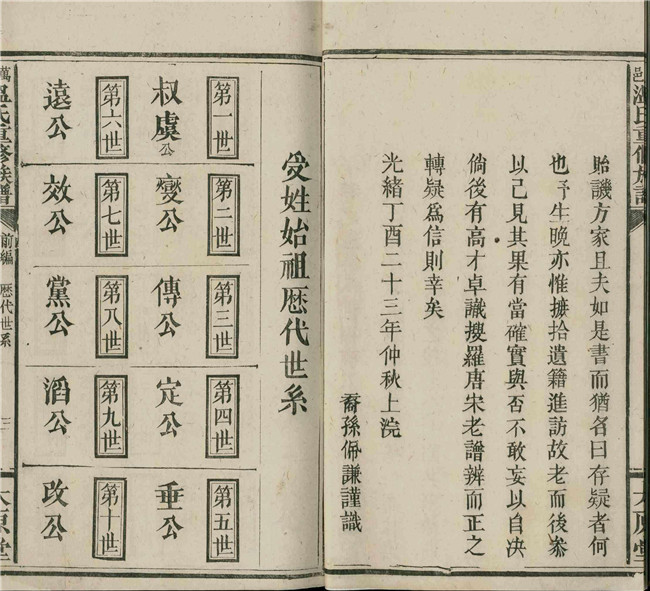 邑溫氏重修族譜
太原堂
貽譏方家且夫如是書而猶名曰存疑者何
也予生晚亦惟摭拾遺籍進訪故老而後參
以己見其果有當確實與否不敢妄以自决
倘後有高才卓識搜羅唐宋老譜辨而正之
轉疑爲信則幸矣
光緒丁酉二十三年仲秋上浣
裔孫佩謙謹識
受姓始祖歷代世系
第一世
叔虞公
第二世
變公
第三世
傳公
第四世
定公
第五世
垂公
第六世
遠公
第七世
效公
第八世
黨公
第九世
滔公
第十世
改公
萬溫氏重修族譜
前編
歷代世系
三
太原堂